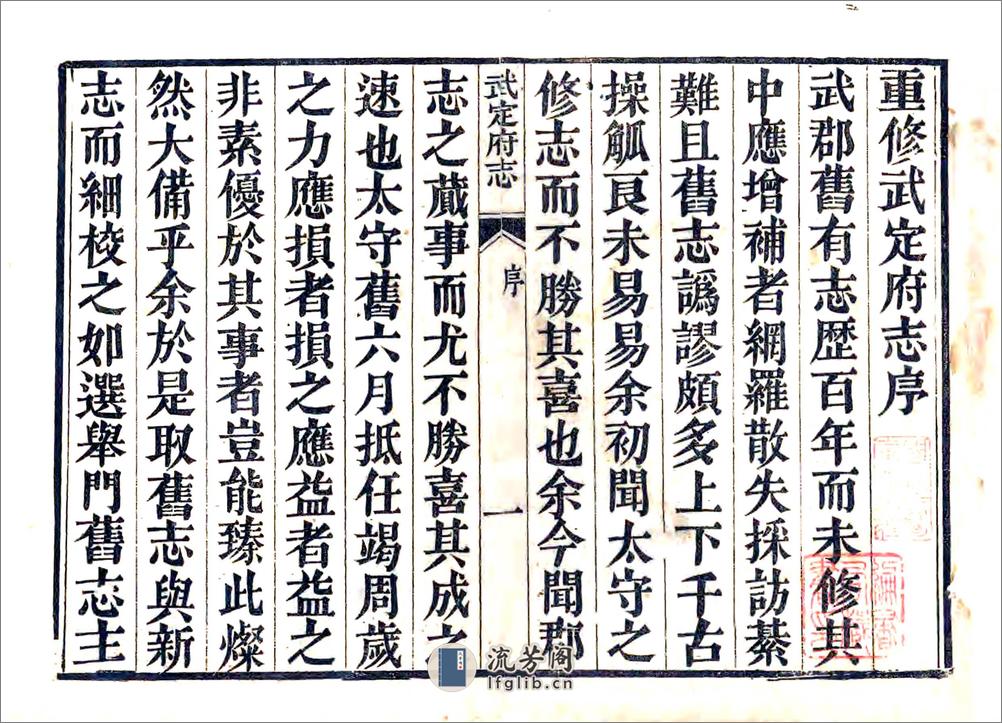 重修武定府志序
武郡舊有志歷百年而未修其
中應增補者網羅散失採訪綦
難且舊志譌謬頗多上下千古
操觚良未易易余初聞太守之
修志而不勝其喜也余今聞郡
武定府志 序 一
志之蕆事而尤不勝喜其成之
速也太守舊六月抵任竭周歲
之力應損者損之應益者益之
非素優於其事者豈能臻此燦
然大備乎余於是取舊志與新
志而細校之如選舉門舊志主
流芳阁
lfglib.cn